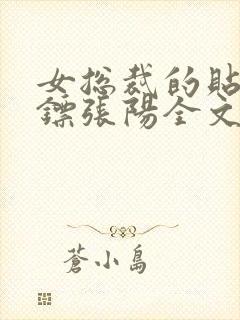 女总裁的貼
鏢張陽全文
蒼小島